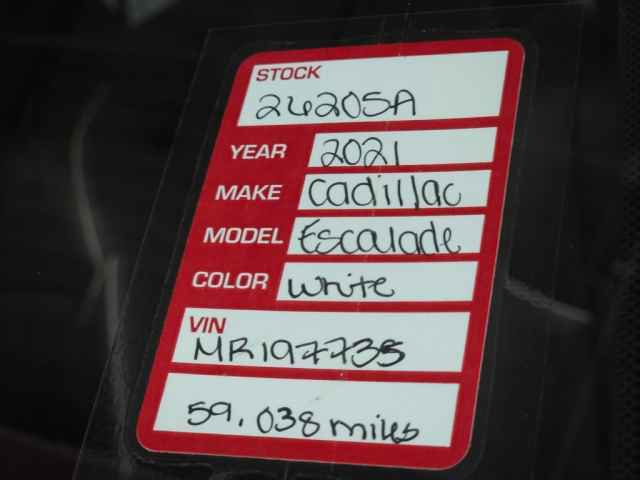 STOCK
26205A
YEAR 2021
MAKE Cadillac
MODEL Escalade
COLOR White
VIN
MR197735
59.038 miles